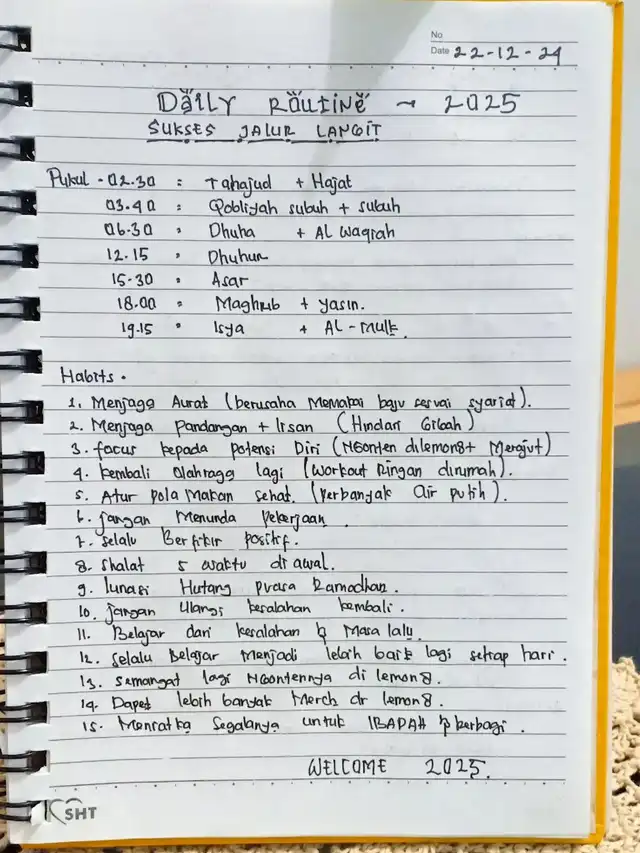 No
Date 22-12-24
Daily Routine → 2025
SUKSES JALUR LANGIT
Pukul - 02.30 : Tahajud + Hajat
03.40 : Qobliyah subuh + subuh
06.30 : Dhuha + Al waqiah
12.15 : Dhuhur
15.30 : Asar
18.00 : Maghrib + yasin.
19.15 : Isya + AL-Mulk.
Habits.
1. Menjaga Aurat (berusaha Memakai baju sesuai syariat).
2. Menjaga Pandangan + lisan (Hindari Gibah)
3. focus kepada potensi Diri (NGonten dilemon8+ Merajut)
4. kembali Olahraga lagi (workout Ringan dirumah).
5. Atur pola Makan sehat. (perbanyak air putih).
6. jangan Menunda Pekerjaan.
7. selalu Berfikir positif.
8. shalat 5 waktu di awal.
9. lunasi Hutang puasa Ramadhan.
10. jangan Ulangi kesalahan kembali.
11. Belajar dari kesalahan & Masa lalu.
12. selalu Belajar Menjadi lebih baik lagi setiap hari.
13. semangat lagi NGontennya di lemon8.
14. Dapet lebih banyak Merch dr lemon8.
15. Menratka Segalanya untuk IBADAH & berbagi.
WELCOME 2025.
SHT